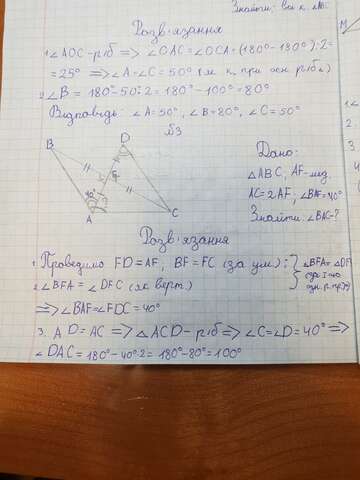 Знайти: всі к. ∠ABC
Розв'язання
1. ∠AOC - р/б => ∠OAC = ∠OCA = (180° - 130°) : 2 =
= 25° => ∠A = ∠C = 50° (як к. при осн. р/б Δ)
2. ∠B = 180° - 50° · 2 = 180° - 100° = 80°
Відповідь: ∠A = 50°, ∠B = 80°, ∠C = 50°
№3
B
D
F
40°
A
C
Дано:
ΔABC, AF - мед.
AC = 2AF, ∠BAF = 40°
Знайти: ∠BAC - ?
Розв'язання
1. Проведимо FD = AF, BF = FC (за ум.) ;
∠BFA = ∠DF
2. ∠BFA = ∠DFC (як верт.)
=> ∠BAF = ∠FDC = 40°
3. AD = AC => ΔACD - р/б => ∠C = ∠D = 40° =>
∠DAC = 180° - 40° · 2 = 180° - 80° = 100°